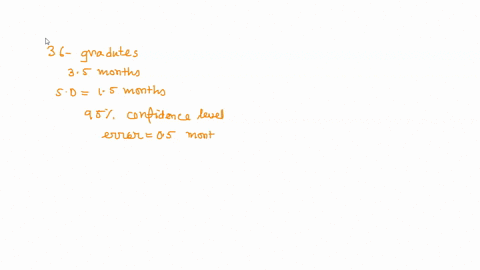 36- gradutes
3.5 months
S.D = 1.5 months
95% confidence level
error = 0.5 mont